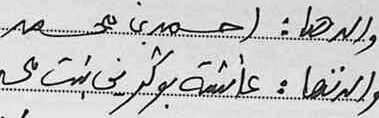 والدها: احمد بن محمد
والدتها: عائشة بوكرين بنت محمد